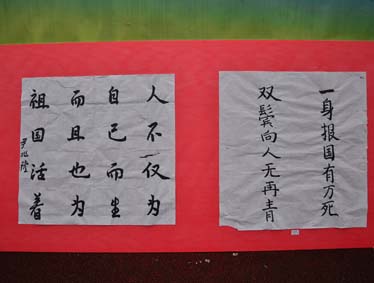 一身报国有万死
双鬓向人无再青
人不仅为
自己而生
而且也为
祖国活着